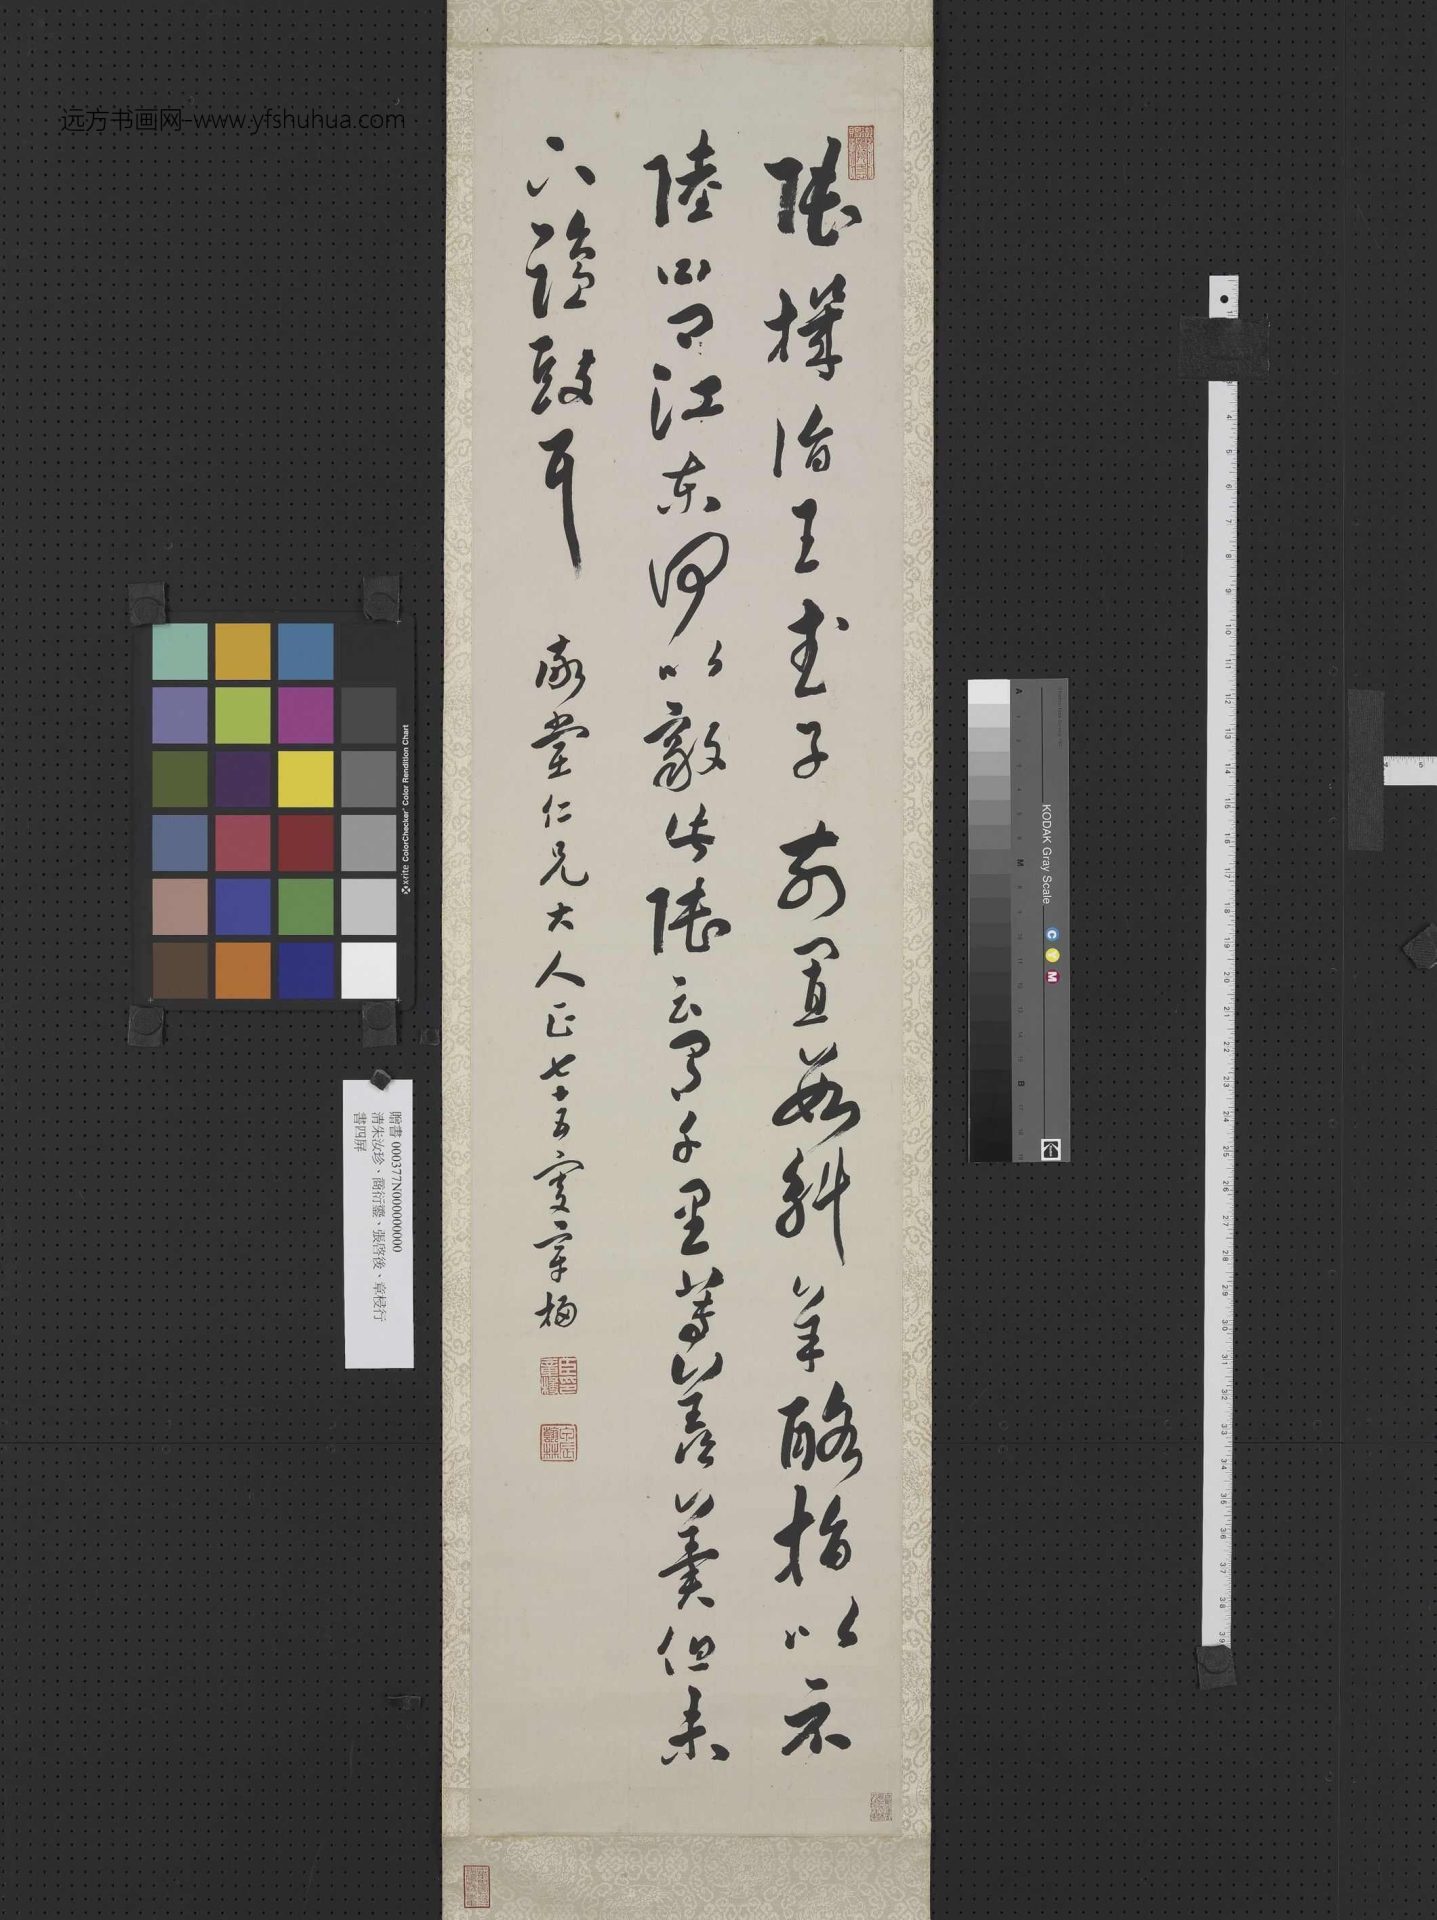 陸機詣王武子前置數斛羊酪指以示
陸曰卿江東何以敵此陸云有千里蓴羹但未
下鹽豉耳
堂仁兄大人正七十五叟章梫
远方书画网-www.yfshuhua.com
贈書 000377N000000000
清朱汝珍、商衍鎏、張啓後、章梫行
書四屏
x-rite ColorChecker Color Rendition Chart
KODAK Gray Scale
C Y M
A
M
B